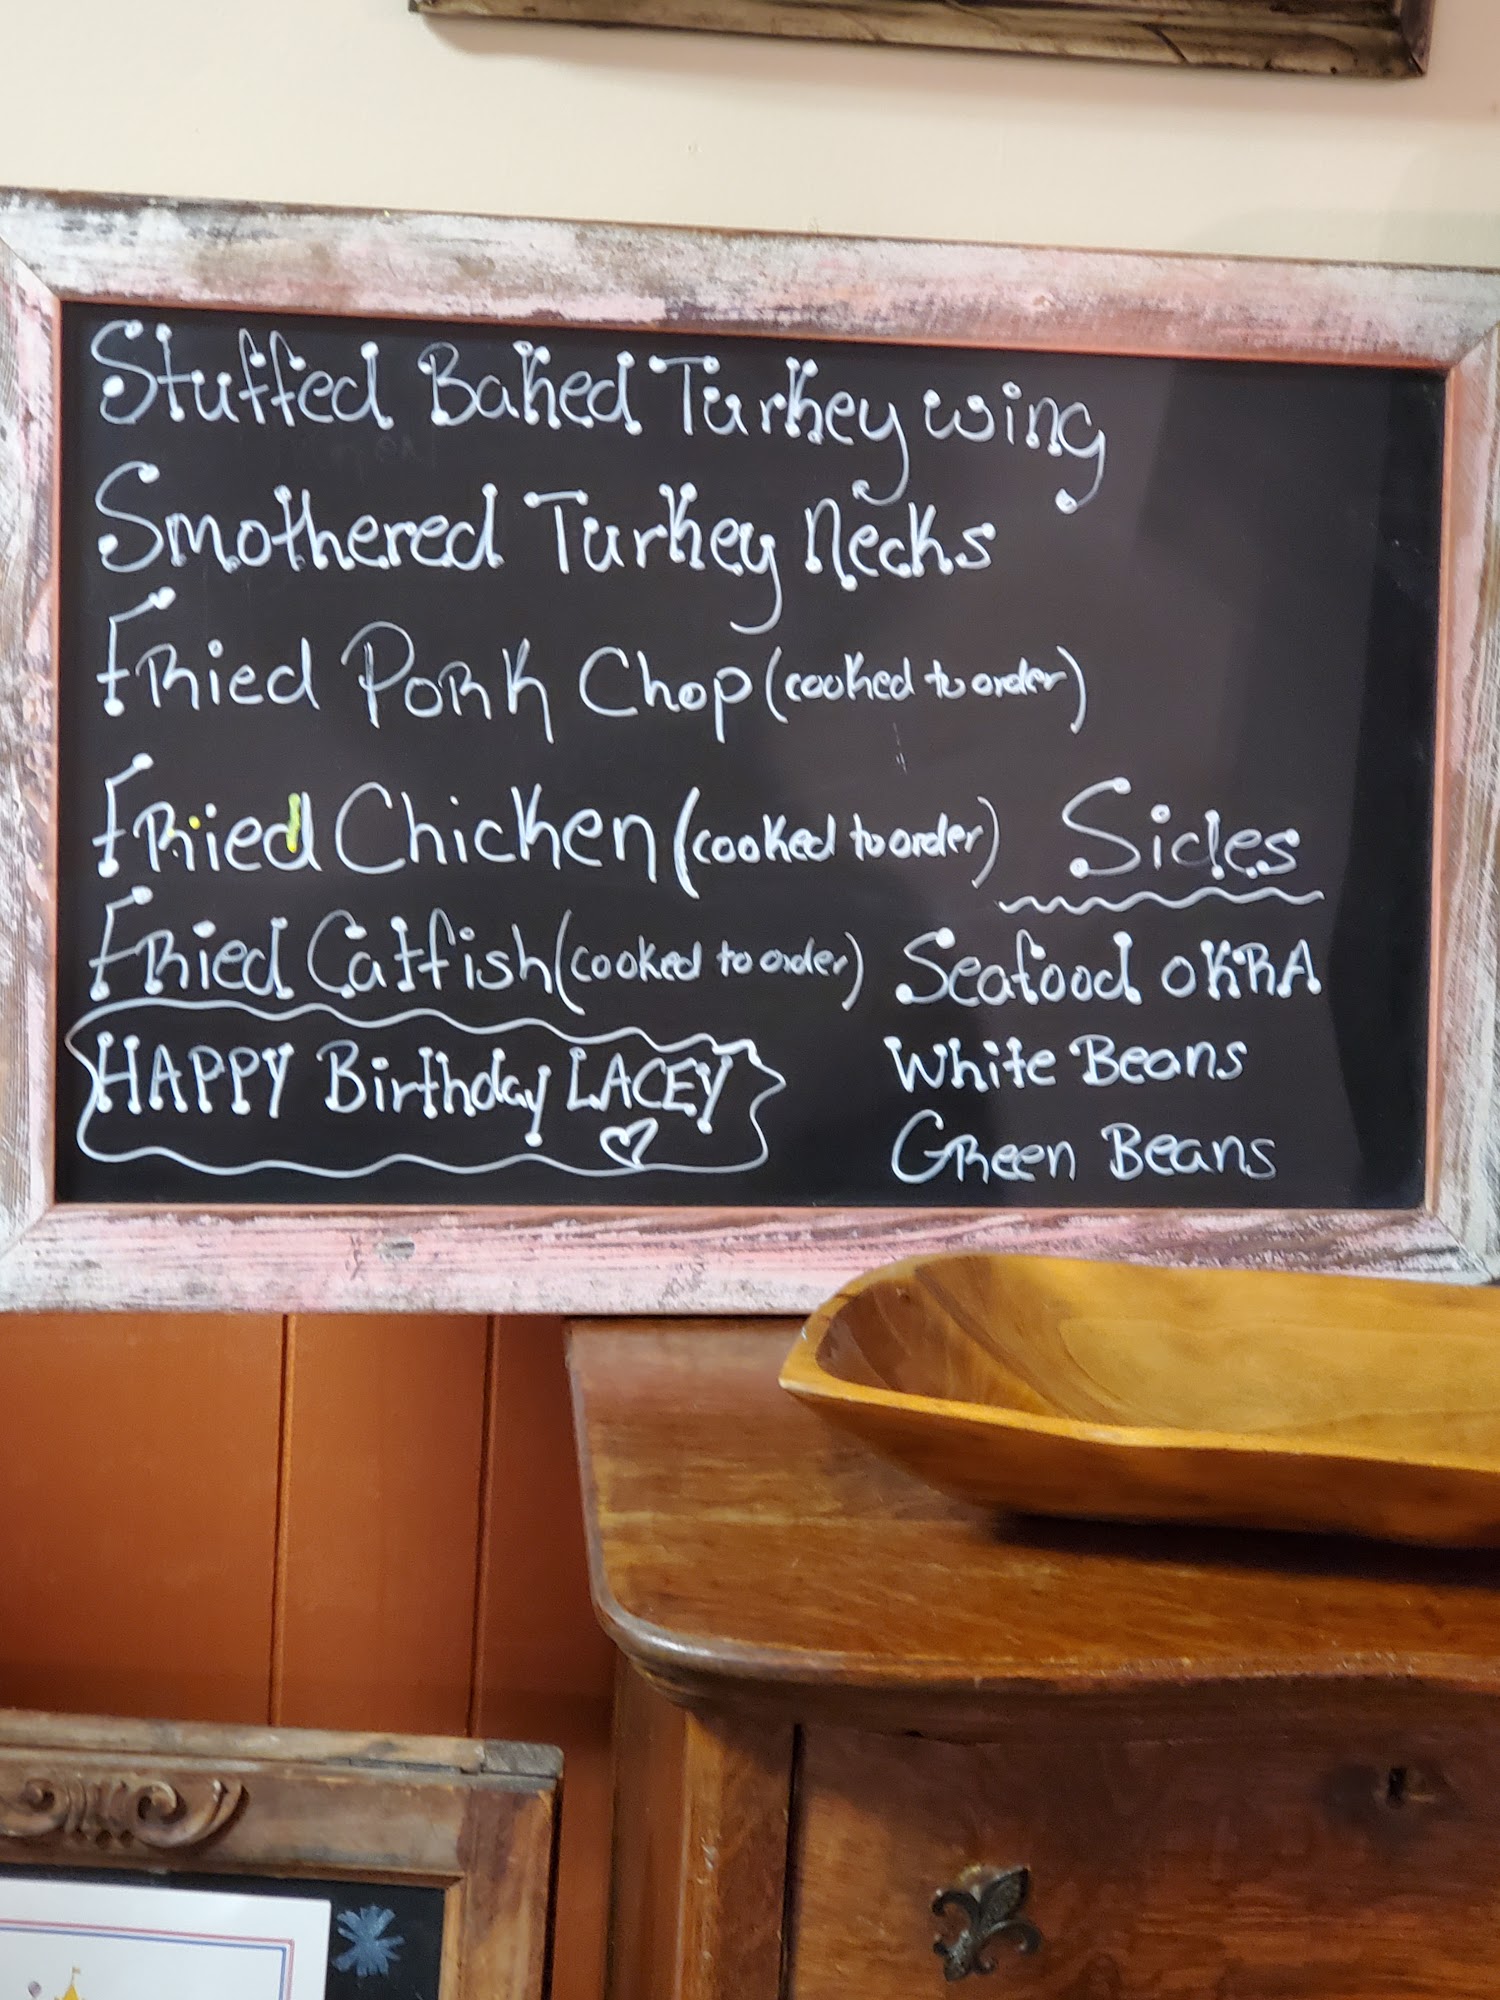 Stuffed Baked Turkey wing
Smothered Turkey Necks
Fried Pork Chop (cooked to order)
Fried Chicken (cooked to order)
Fried Catfish (cooked to order)
HAPPY Birthday LACEY
Sides
Seafood OKRA
White Beans
Green Beans